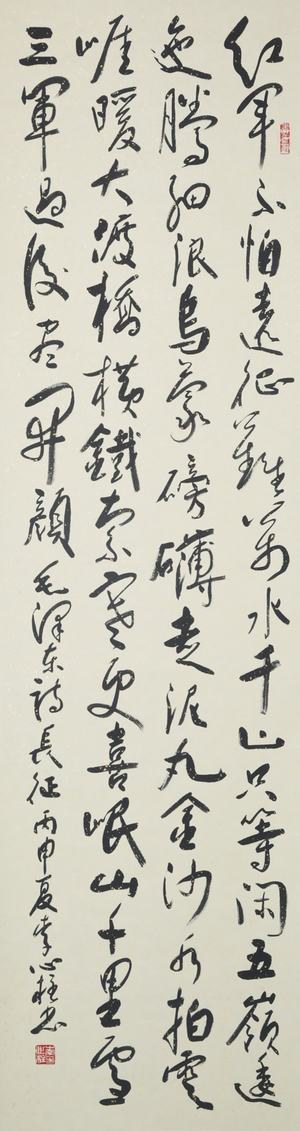 红军不怕遠征難萬水千山只等闲五嶺逶
迤騰細浪烏蒙磅礴走泥丸金沙水拍雲
崕暖大渡橋横鐵索寒更喜岷山千里雪
三軍過後盡開顔毛澤东詩長征丙申夏李心柱书